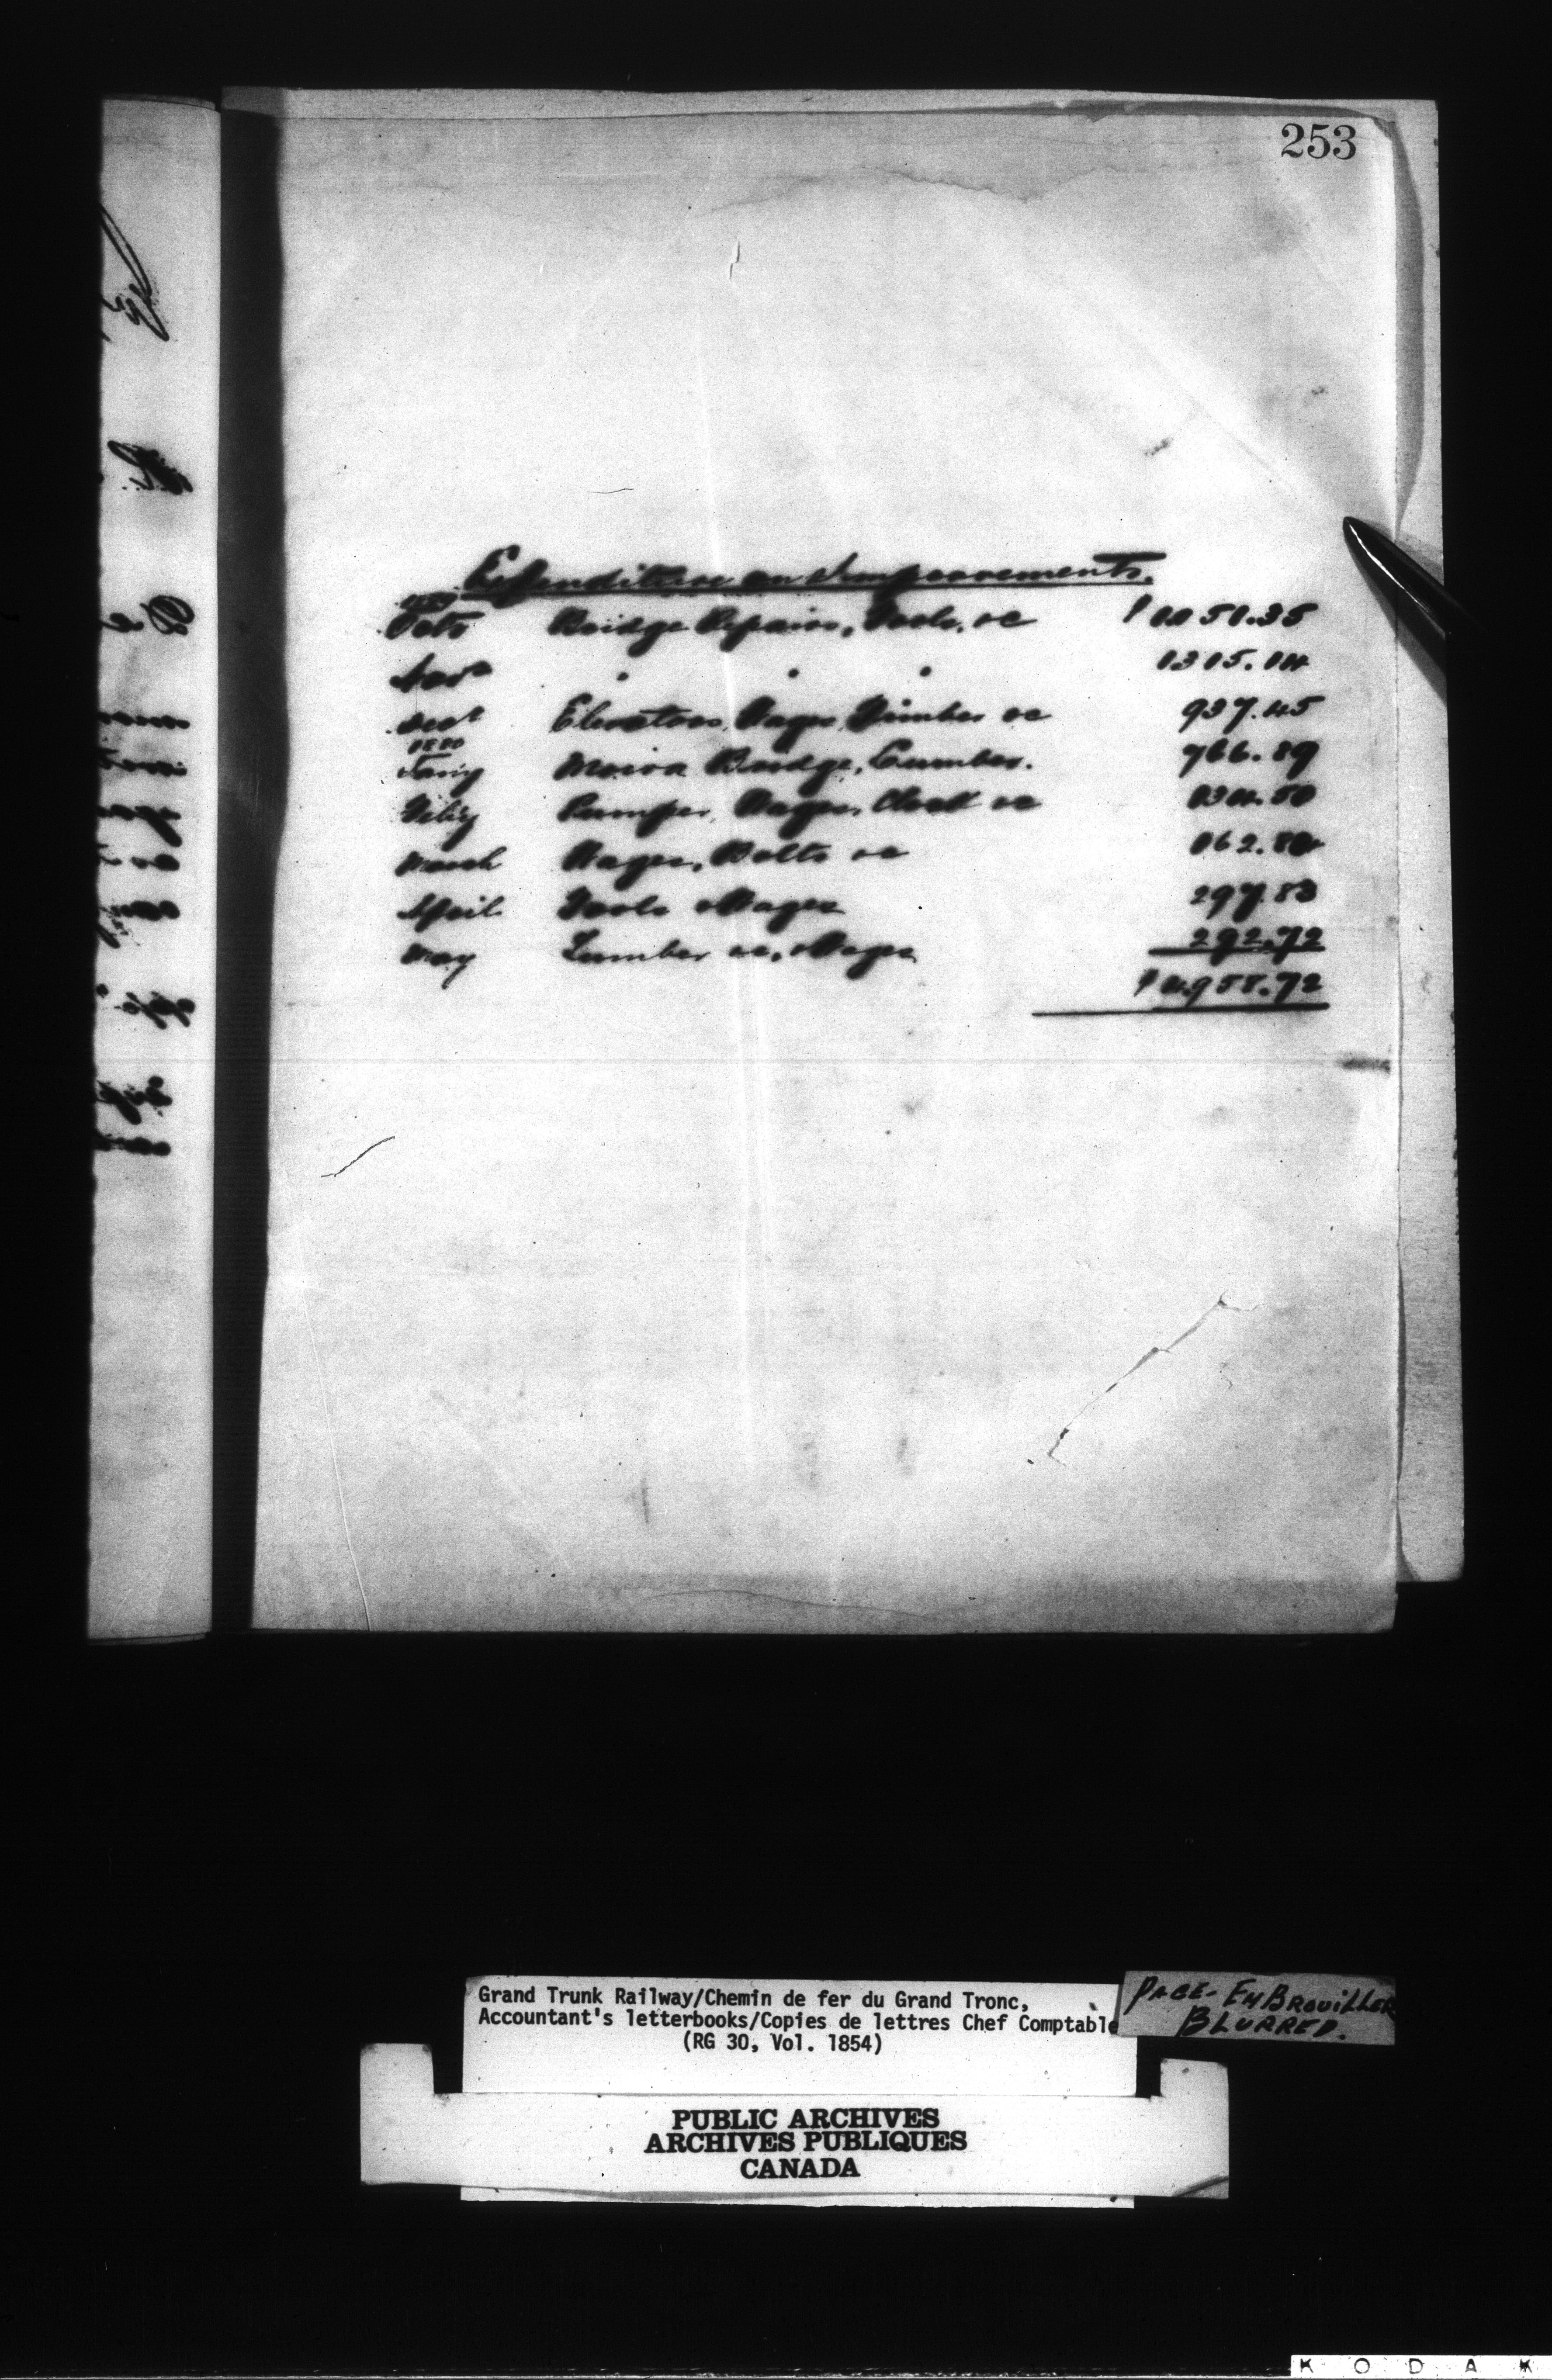 253
Expenditure on Improvements.
1879
Octr Bridge Repairs, Tools, &c $ 1051.35
Novr " " " 1315.14
Decr Elevators, Wages, Timber &c 937.45
1880
Jany Moira Bridge, Lumber. 766.89
Feby Pumper, Wages, &c 134.50
March Wages, Bolts &c 162.84
April Tools & Wages 297.83
May Lumber &c, & Wages 292.72
$ 4958.72
Grand Trunk Railway/Chemin de fer du Grand Tronc,
Accountant's letterbooks/Copies de lettres Chef Comptable
(RG 30, Vol. 1854)
PAGE - EMBROUILLER
BLURRED.
PUBLIC ARCHIVES
ARCHIVES PUBLIQUES
CANADA
KODAK